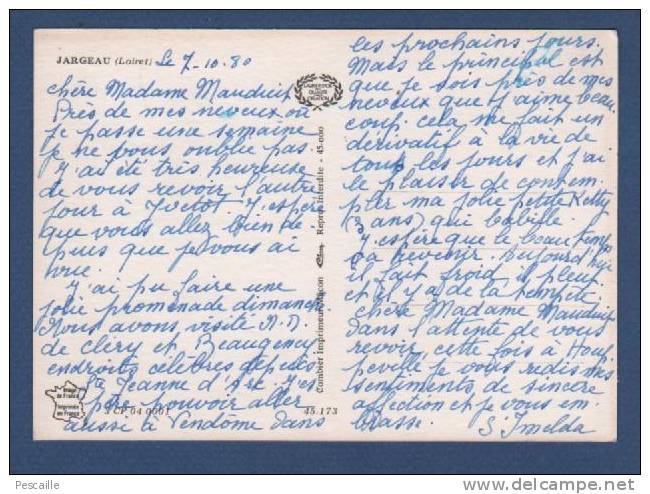 JARGEAU (Loiret) Le 7-10-80
chère Madame Mauduit
Près de mes neveux où
je passe une semaine
je ne vous oublie pas.
J'ai été très heureuse
de vous revoir l'autre
jour à Yvetot. J'espère
que vous allez bien de-
puis que je vous ai
vue.
J'ai pu faire une
jolie promenade dimanche
Nous avons visité N.D.
de cléry et Beaugency
endroits célèbres depuis
Ste Jeanne d'Arc. J'es-
père pouvoir aller
aussi à Vendome dans
les prochains jours.
Mais le principal est
que je sois près de mes
neveux que j'aime beau
coup. cela me fait un
dérivatif à la vie de
tous les jours et j'ai
le plaisir de contem-
pler ma jolie petite Ketty
(3 ans) qui babille.
J'espère que le beau temps
va revenir. Aujourd'hui
il fait froid il pleut
et il y a de la tempête.
chère Madame Mauduit
dans l'attente de vous
revoir, cette fois à Houp
peville je vous redis mes
sentiments de sincère
affection et je vous em-
brasse. S. Imelda
Combier Imprimeur Mâcon
Repros Interdite 45-000
Image de France
Imprimée en France
1 CP 04 0001
45.173
Pescaille
delcampe.net